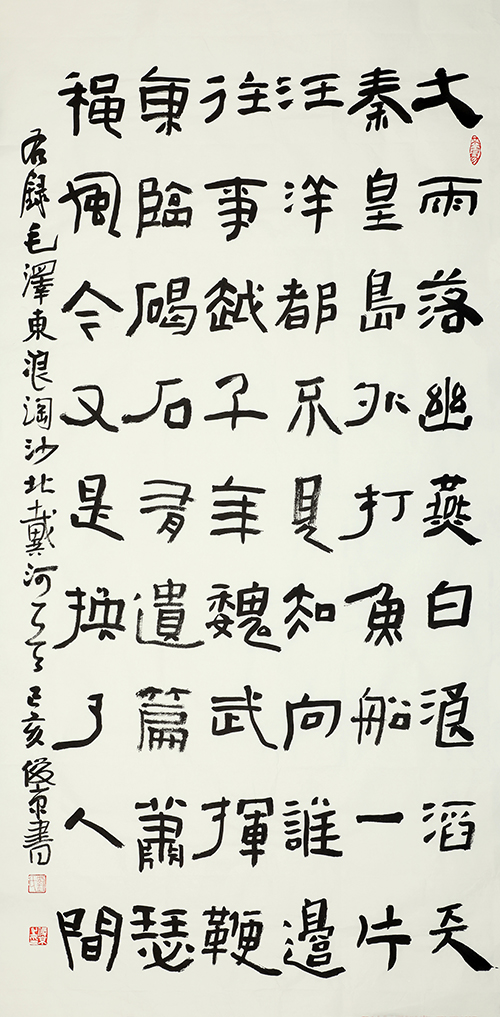 大雨落幽燕白浪滔天
秦皇島外打魚船一片
汪洋都不見知向誰邊
往事越千年魏武揮鞭
東臨碣石有遺篇蕭瑟
穐風今又是換了人間
右録毛澤東浪淘沙北戴河 己亥 書